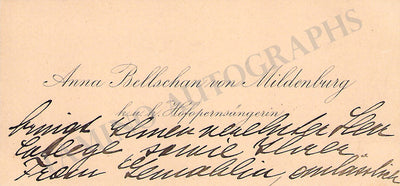 Anna Bellschan von Mildenburg
k. u. k. Hofopernsängerin
bringt Ihnen verehrter Herr
College sowie Ihrer
Frau Gemahlin,
AUTOGRAPHS